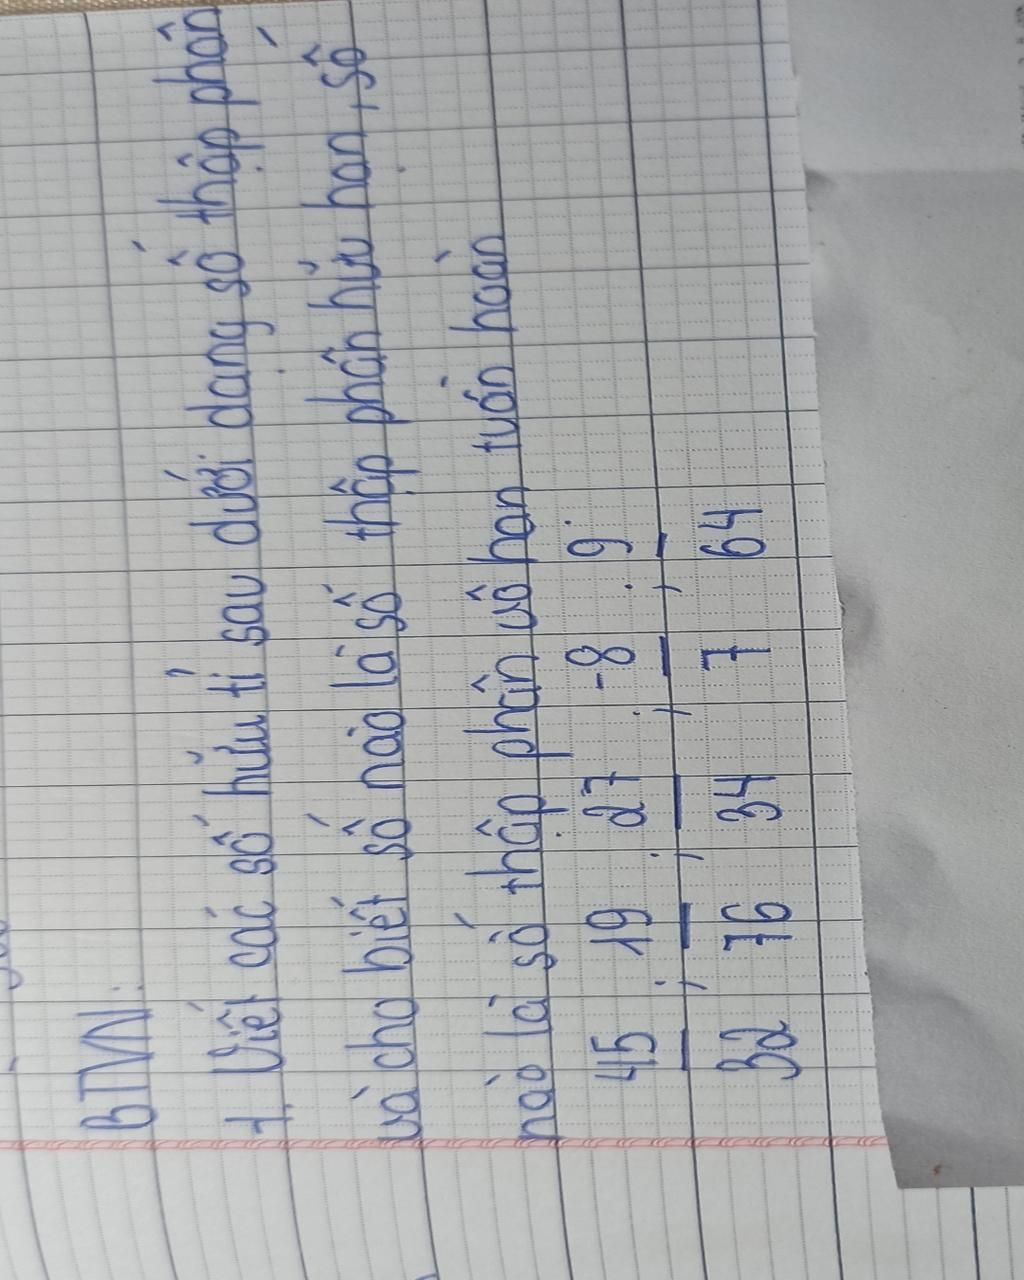 BTVN:
1. Viết các số hửu tỉ sau dưới dạng số thập phân
và cho biết số nào là số thập phân hửu hạn, số
nào là số thập phân vô hạn tuần hoàn
45/32 ; 19/16 ; 27/34 ; -8/7 ; 9/64